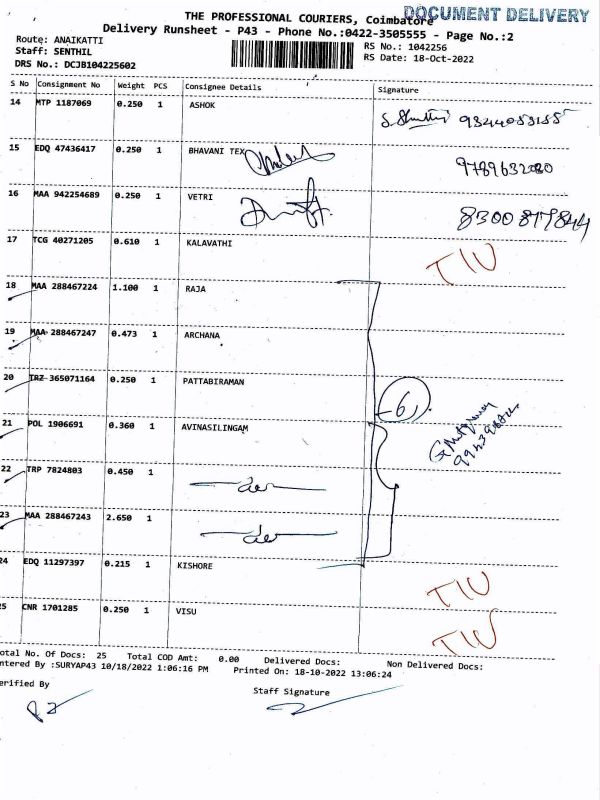 THE PROFESSIONAL COURIERS, Coimbatore
DOCUMENT DELIVERY
Delivery Runsheet - P43 - Phone No.:0422-3505555 - Page No.:2
Route: ANAIKATTI
RS No.: 1042256
Staff: SENTHIL
RS Date: 18-Oct-2022
DRS No.: DCJB104225602
S No Consignment No Weight PCS Consignee Details Signature
14 MTP 1187069 0.250 1 ASHOK
15 EDQ 47436417 0.250 1 BHAVANI TEX 9789632080
16 MAA 942254689 0.250 1 VETRI 8300877844
17 TCG 40271205 0.610 1 KALAVATHI
18 MAA 288467224 1.100 1 RAJA
19 MAA 288467247 0.473 1 ARCHANA
20 TRZ 365071164 0.250 1 PATTABIRAMAN
6
21 POL 1906691 0.360 1 AVINASILINGAM
22 TRP 7824803 0.450 1
23 MAA 288467243 2.650 1
24 EDQ 11297397 0.215 1 KISHORE
25 CNR 1701285 0.250 1 VISU
otal No. Of Docs: 25 Total COD Amt: 0.00 Delivered Docs: Non Delivered Docs:
ntered By :SURYAP43 10/18/2022 1:06:16 PM Printed On: 18-10-2022 13:06:24
erified By
Staff Signature